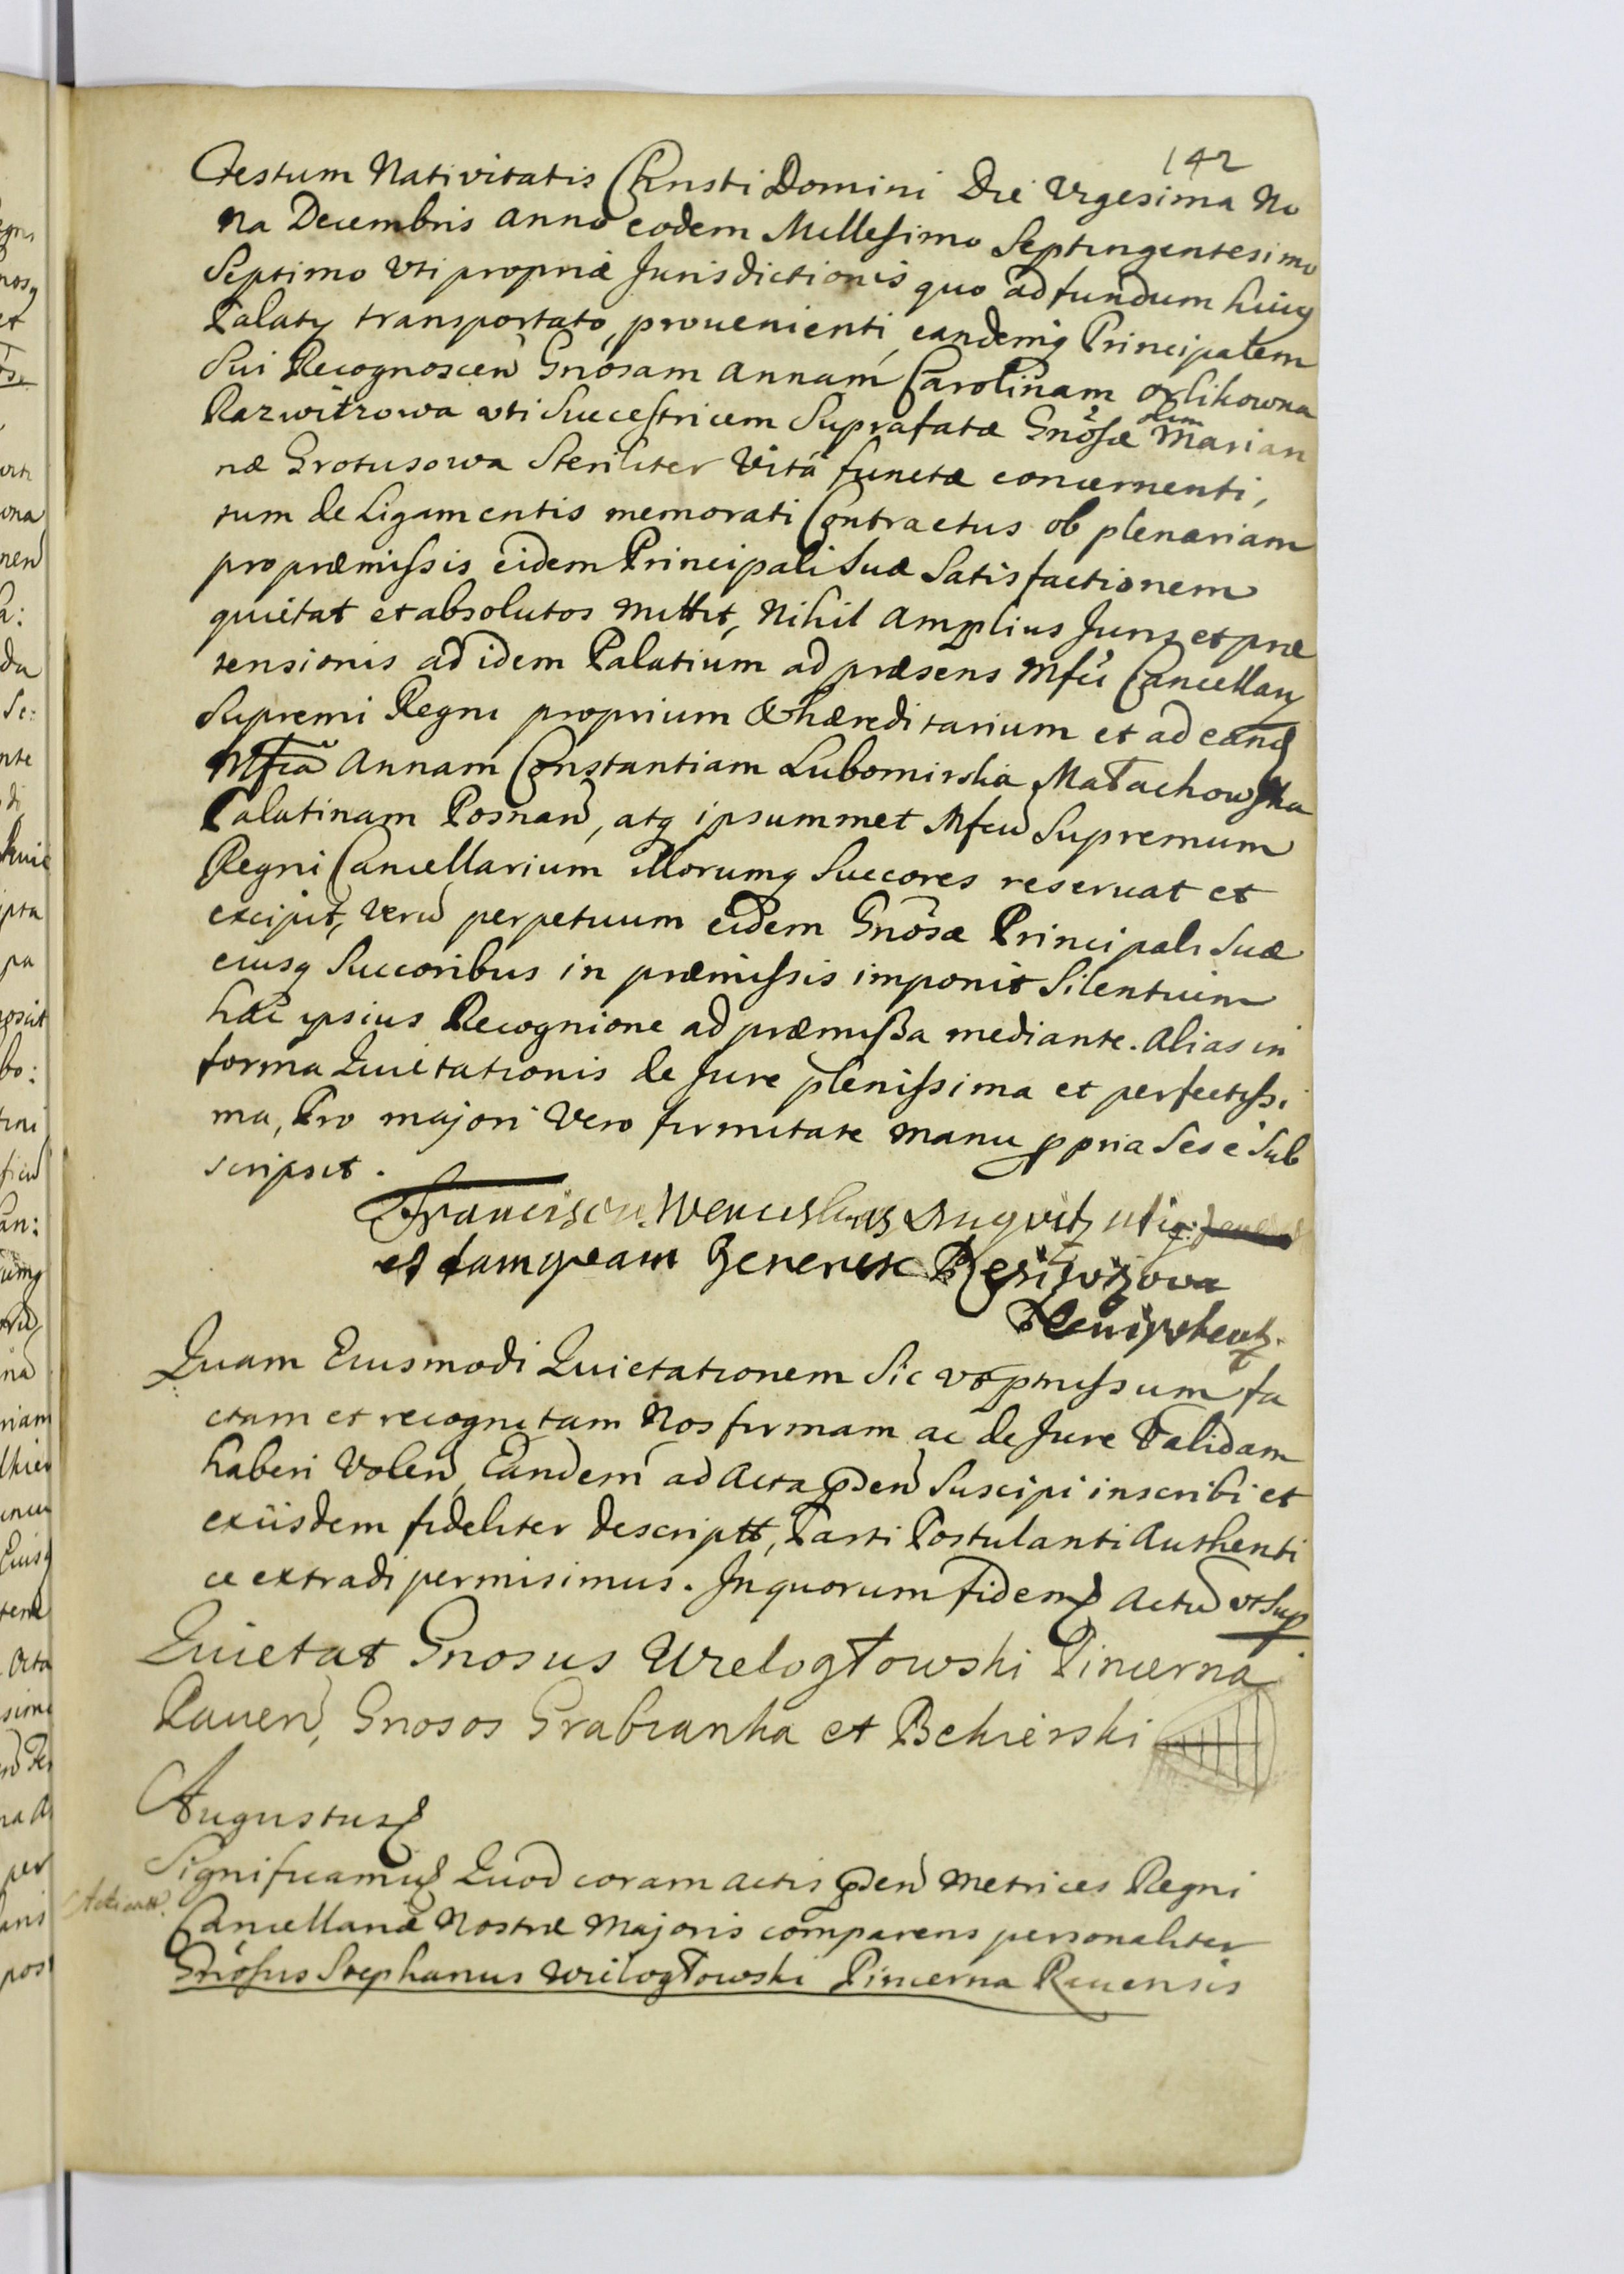 142
Festum Nativitatis Christi Domini Die Vigesima No
na Decembris anno eodem Millesimo Septingentesimo
Septimo Vti propriæ Jurisdictionis quo ad fundum huiꝰ
Palatÿ transportato, prouenienti, eandemq̃ Principalem
Sui Recognoscen̄ Gnosam Annam Carolinam Orlikowna
Razwitzowa uti Succestricem Suprafatæ Gnosæ olim Marian
næ Grotusowa Steriliter Vitâ functæ concernenti,
tum de Ligamentis memorati Contractus ob plenariam
pro præmissis eidem Principali Suæ Satisfactionem
quietat et absolutos mittit, Nihil Amplius Juris et præ
tensionis ad idem Palatium ad præsens Mfci Cancellarÿ
Supremi Regni proprium & hæreditarium et ad eand̄
Mfcā Annam Constantiam Lubomirska Małachowska
Palatinam Posnan̄, atq̃ ipsummet Mfcū Supremum
Regni Cancellarium illorumq̃ Succores reseruat et
excipit, Verū perpetuum eidem Gnosæ Principali Suæ
eiusq̃ Succoribus in præmissis imponit Silentium
hac ipsius Recognione ad præmissa mediante. Alias in
forma Quietationis de Jure plenissima et perfectissi
ma, Pro majori Vero firmitate manu ppria Sese Sub
scripsit.
Franciscus Wenceslaus
et tamquam Generosæ
Plenipotent.
Quam Eiusmodi Quietationem Sic vt pmissum fa
ctam et recognitam Nos firmam ac de Jure Validam
haberi Volen̄, Eandem ad Acta pden̄ Suscipi inscribi et
ex iisdem fideliter descriptt, Parti Postulanti Authenti
ce extradi permisimus. In quorum fidem Actū vt Sup
Quietat Gnosus Wielogłowski Pincerna
Rauen̄, Gnosos Grabianka et Bekierski
Augustus
Significamus Quod coram actis pden̄ Metrices Regni
Cancellariæ Nostræ Majoris comparens personaliter
Gnosus Stephanus Wielogłowski Pincerna Rauensis